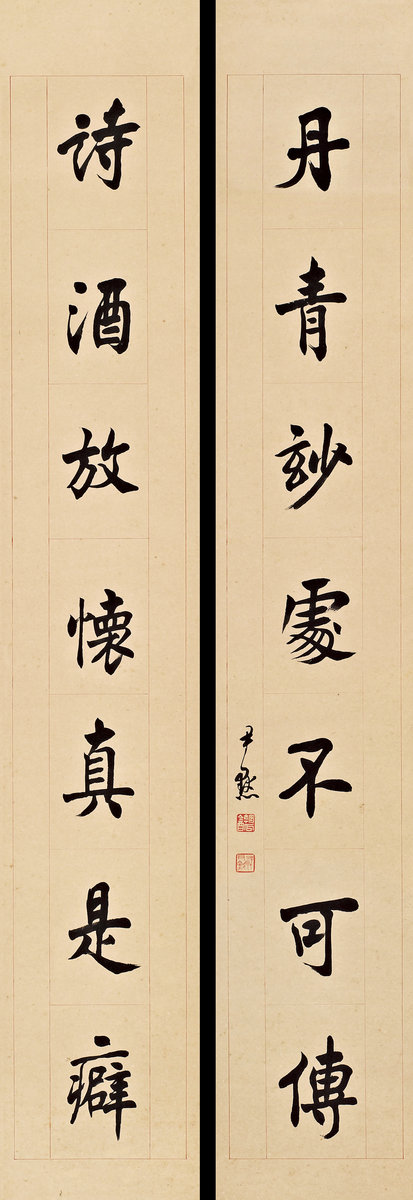 丹青玅處不可傳
尹默
詩酒放懷真是癖